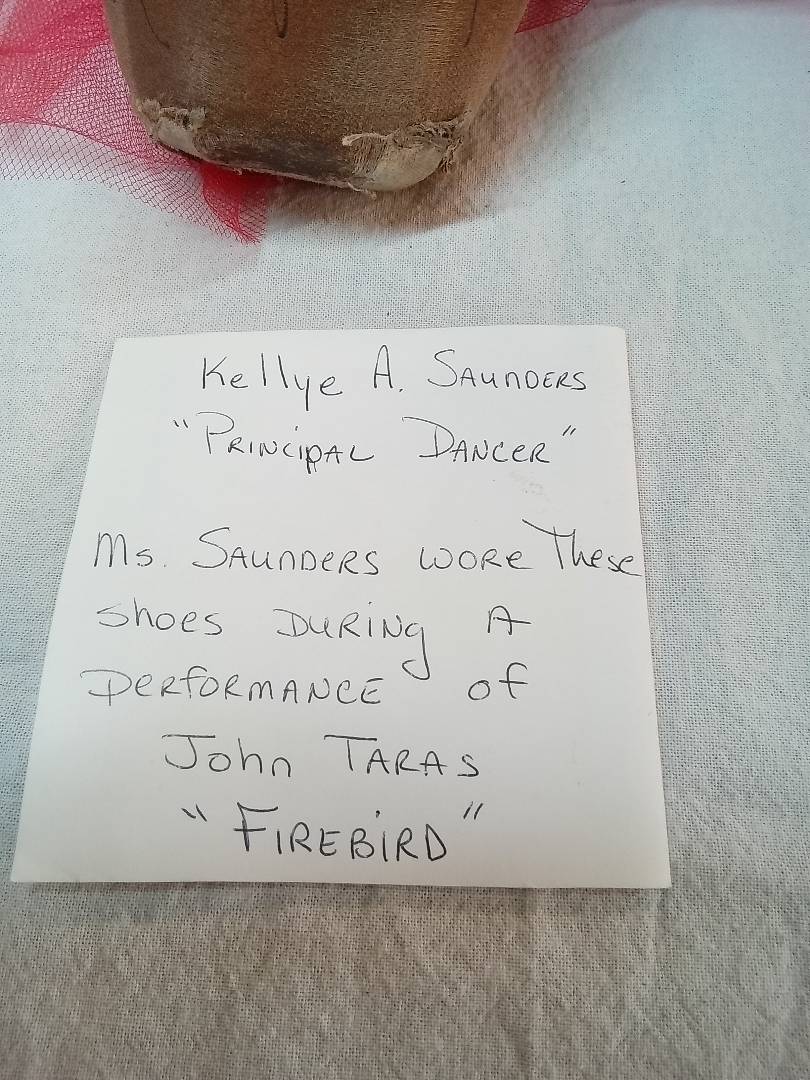 Kellye A. Saunders
"Principal Dancer"
Ms. Saunders wore These
shoes During A
Performance of
John Taras
"Firebird"